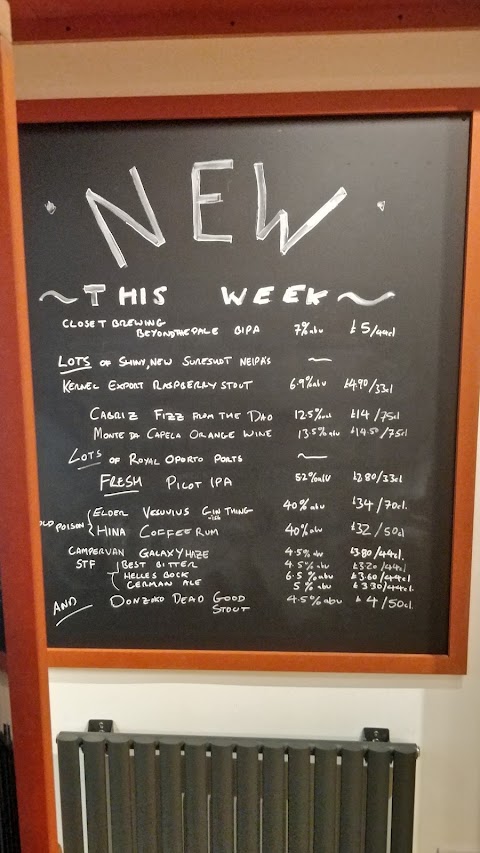 NEW
~ THIS WEEK ~
CLOSET BREWING
BEYONDTHEPALE BIPA 7%abv £5/44cl
LOTS OF SHINY, NEW SURESHOT NEIPA'S ~
KERNEL EXPORT RASPBERRY STOUT 6.9%abv £4.90/33cl
CABRIZ FIZZ FROM THE DAO 12.5%abv £14/75cl
MONTE DA CAPELA ORANGE WINE 13.5%abv £14.50/75cl
LOTS OF ROYAL OPORTO PORTS ~
FRESH PILOT IPA 52%abv £2.80/33cl
ELDER VESUVIUS GIN THING 40%abv £34/70cl.
OLD POISON HINA COFFEE RUM 40%abv £32/50cl
CAMPERVAN GALAXY HAZE 4.5%abv £3.80/44cl.
STF BEST BITTER 4.5%abv £3.20/44cl
HELLES BOCK 6.5%abv £3.60/44cl
GERMAN ALE 5%abv £3.30/44cl.
AND DONZOKO DEAD GOOD STOUT 4.5%abv £4/50cl.